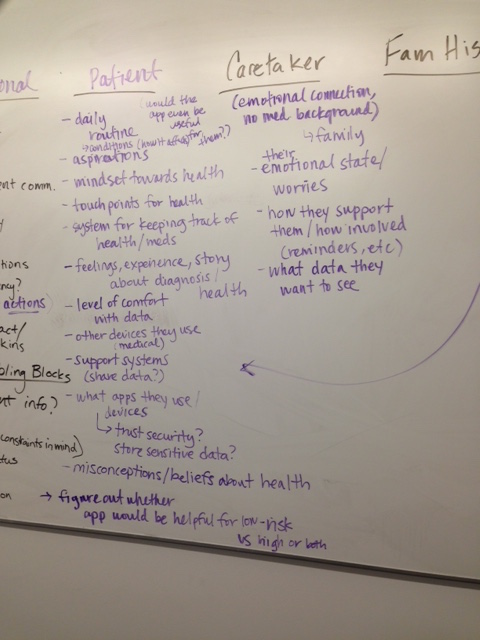 onal
ent comm.
y
tions
ncy?
actions
act/
kins
bling Blocks
nt info?
constaints in mind)
tus
on
Patient
(would the
app even be
useful
for them?)
- daily
routine
→ conditions (how it affects
- aspirations
- mindset towards health
- touchpoints for health
- system for keeping track of
health/meds
- feelings, experience, story
about diagnosis/
health
- level of comfort
with data
- other devices they use
(medical)
- support systems
(share data?)
- what apps they use/
devices
↳ trust security?
store sensitive data?
- misconceptions/beliefs about health
→ figure out whether
app would be helpful for low-risk
vs high or both
Caretaker
(emotional connection,
no med background)
↳ family
- their
emotional state/
worries
- how they support
them/how involved
(reminders, etc)
- what data they
want to see
Fam His